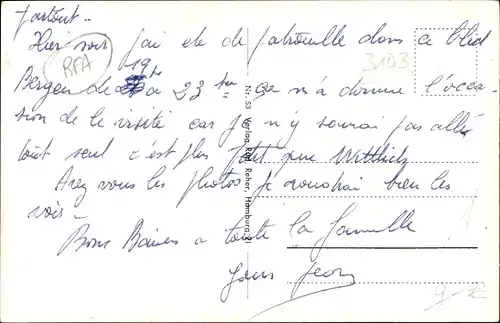 partout -
Hier soir j'ai été de patrouille dans ce bled
RFA
3103
Bergen de 19h à 23 h ça m'a donné l'occa-
sion de le visité car je n'y serai pas allé
tout seul c'est plus petit que Wittlich
Avez vous les photos je voudrai bien les
voir -
Bons Baisers a toute la famille
Jean
Nr. 53 Verlag Rud. Reher, Hamburg 21